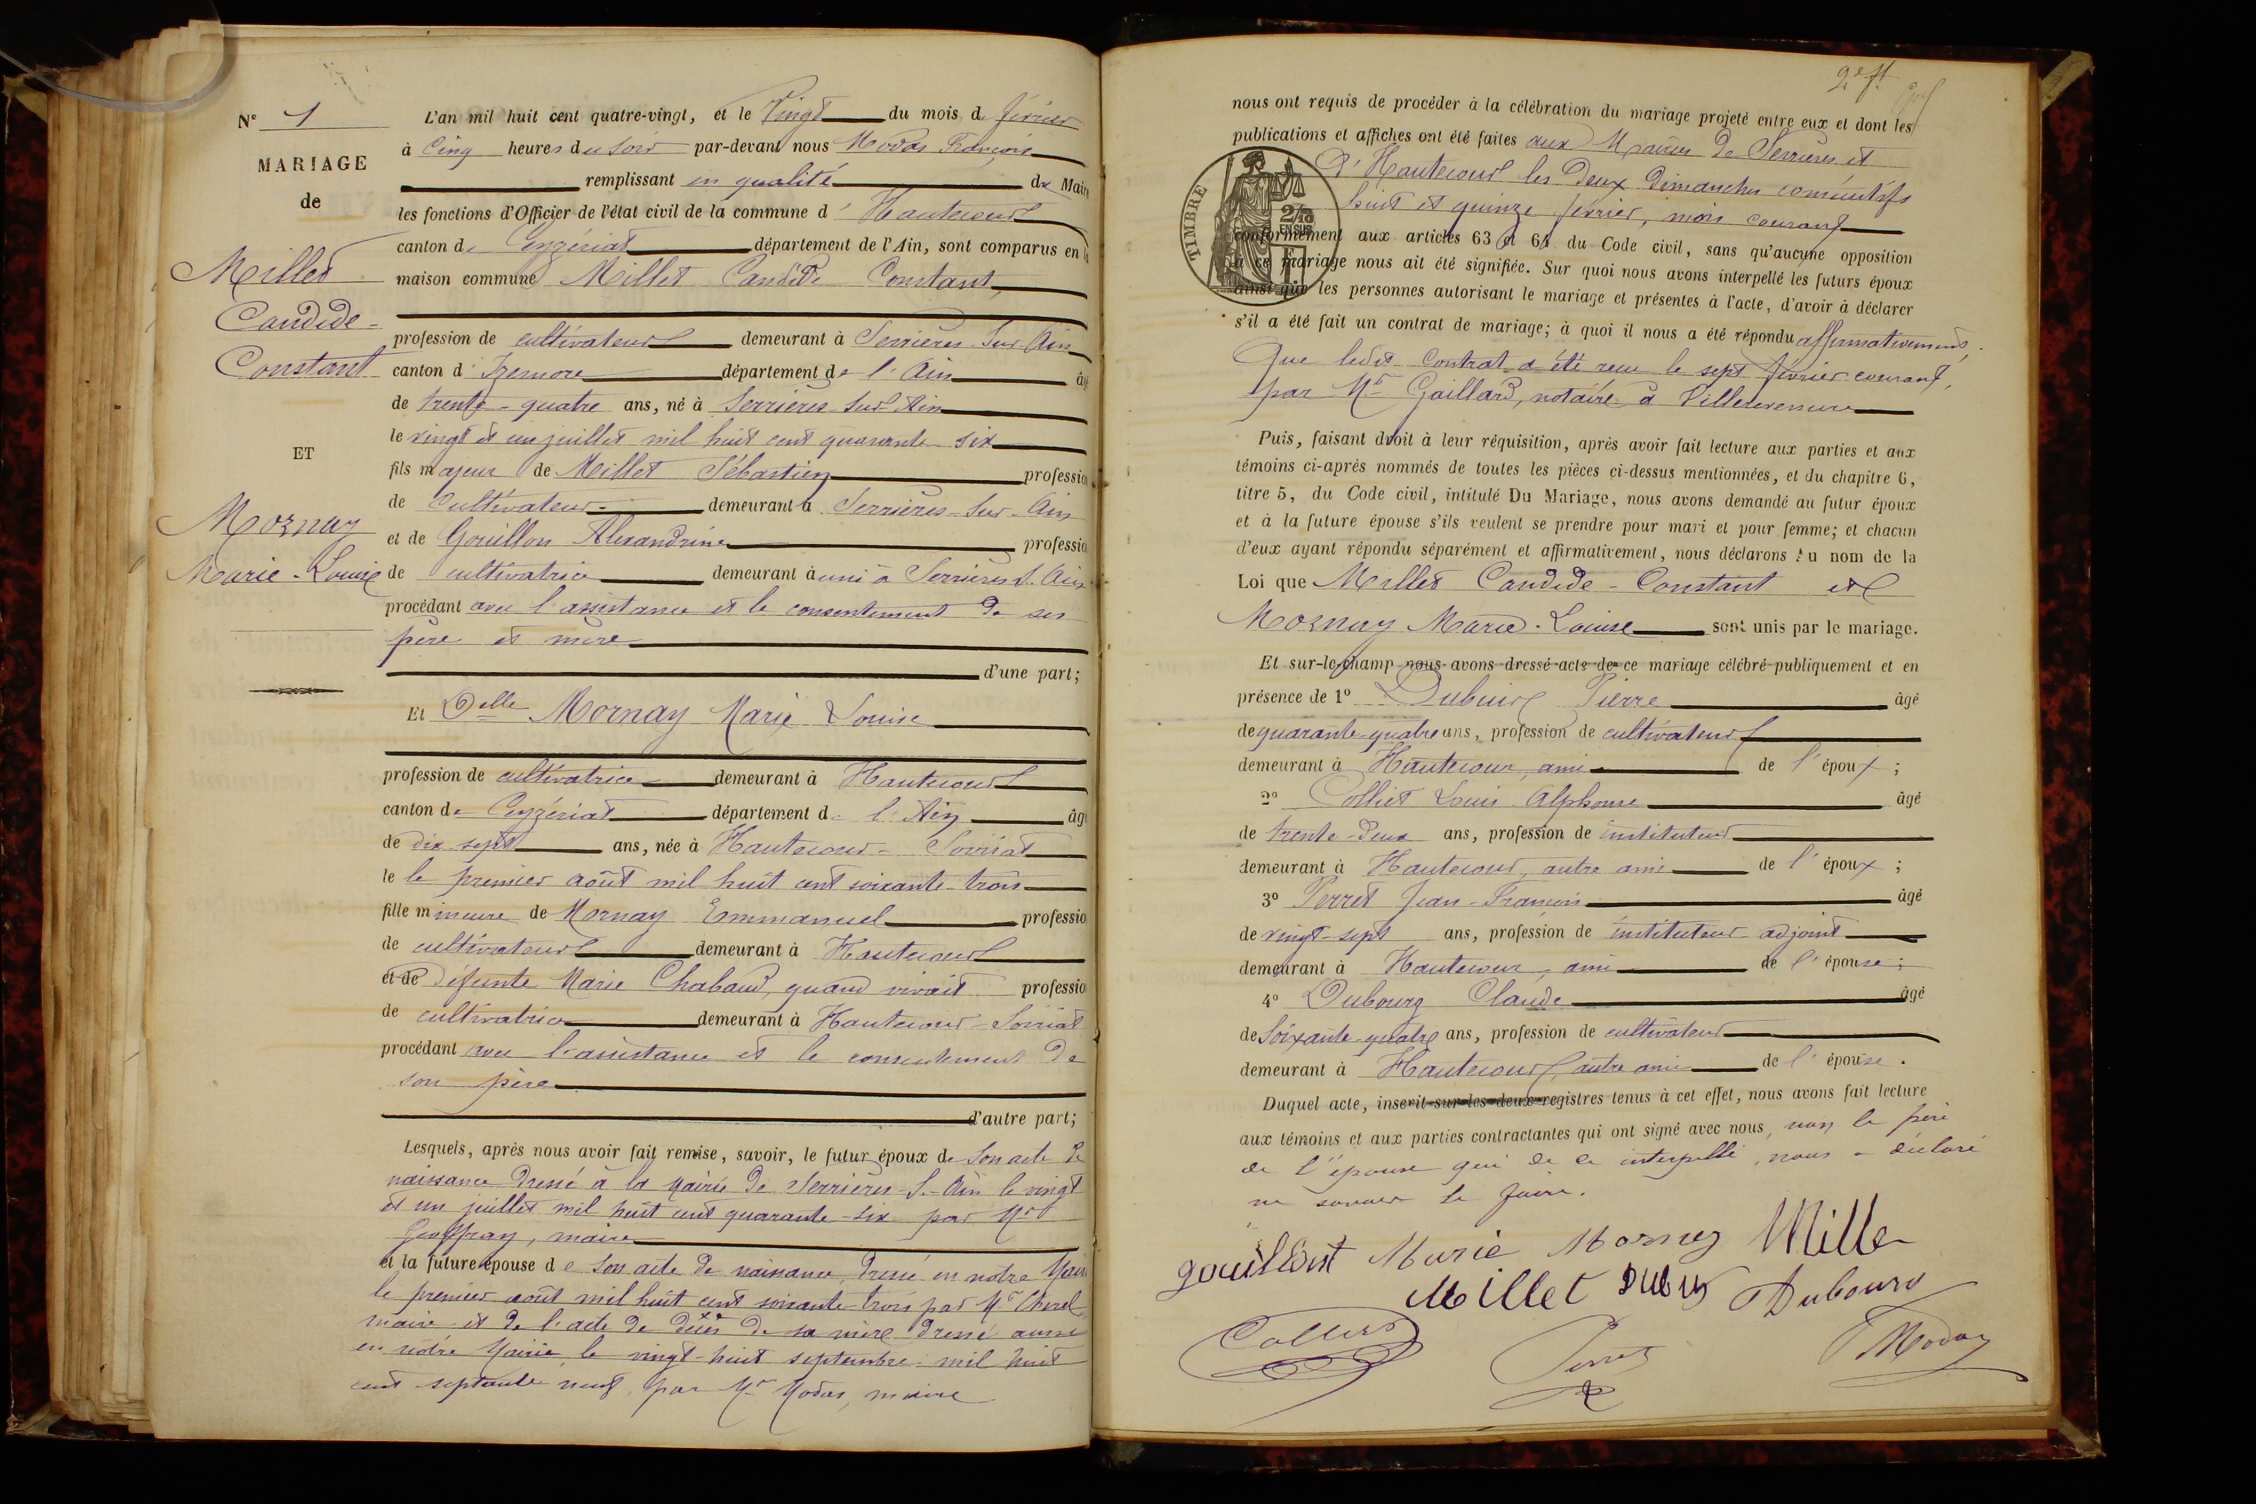 N° 1
MARIAGE
de
Millet
Candide-
Constant
ET
Mornay
Marie-Louise
L'an mil huit cent quatre-vingt, et le Vingt du mois de février
à Cinq heures du soir par-devant nous Modas François
remplissant en qualité de Maire
les fonctions d'Officier de l'état civil de la commune d'Hautecour
canton de Ceyzériat département de l'Ain, sont comparus en la
maison commune Millet Candide Constant,
profession de cultivateur demeurant à Serrières-sur-Ain
canton d'Izernore département de l'Ain âgé
de trente-quatre ans, né à Serrières-sur-Ain
le vingt et un juillet mil huit cent quarante-six
fils majeur de Millet Sébastien profession
de Cultivateur demeurant à Serrières-sur-Ain
et de Gouillon Alexandrine profession
de cultivatrice demeurant à Serrières S. Ain
procédant avec l'assistance et le consentement de ses
père et mère
d'une part;
Et Delle Mornay Marie Louise
profession de cultivatrice demeurant à Hautecour
canton de Ceyzériat département de l'Ain âgé
de dix sept ans, née à Hautecour-
le le premier août mil huit cent soixante-trois
fille mineure de Mornay Emmanuel profession
de cultivateur demeurant à Hautecour
et de défunte Marie Chabaud, quand vivait profession
de cultivatrice demeurant à Hautecour-
procédant avec l'assistance et le consentement de
son père
d'autre part;
Lesquels, après nous avoir fait remise, savoir, le futur époux de Son acte de
naissance dressé à la Mairie de Serrières-S.-Ain le vingt
et un juillet mil huit cent quarante-six par Mr
Geoffray, maire
et la future épouse de son acte de naissance, dressé en notre Mairie
le premier août mil huit cent soixante-trois par Mr
maire et de l'acte de décès de sa mère dressé aussi
en notre Mairie, le vingt-huit septembre mil huit
cent septante neuf, par Mr Modas, maire
2e ft
nous ont requis de procéder à la célébration du mariage projeté entre eux et dont les
publications et affiches ont été faites aux Mairies de Serrières et
d'Hautecour les deux dimanches consécutifs
huit et quinze février, mois courant
TIMBRE
2/10
EN SUS
conformément aux articles 63 et 64 du Code civil, sans qu'aucune opposition
à ce mariage nous ait été signifiée. Sur quoi nous avons interpellé les futurs époux
ainsi que les personnes autorisant le mariage et présentes à l'acte, d'avoir à déclarer
s'il a été fait un contrat de mariage; à quoi il nous a été répondu affirmativement,
Que ledit contrat a été reçu le sept février courant,
par Mr Gaillard, notaire à Villereversure
Puis, faisant droit à leur réquisition, après avoir fait lecture aux parties et aux
témoins ci-après nommés de toutes les pièces ci-dessus mentionnées, et du chapitre 6,
titre 5, du Code civil, intitulé Du Mariage, nous avons demandé au futur époux
et à la future épouse s'ils veulent se prendre pour mari et pour femme; et chacun
d'eux ayant répondu séparément et affirmativement, nous déclarons au nom de la
Loi que Millet Candide-Constant et
Mornay Marie-Louise sont unis par le mariage.
Et sur-le-champ nous avons dressé acte de ce mariage célébré publiquement et en
présence de 1° Dubuis Pierre âgé
de quarante-quatre ans, profession de cultivateur
demeurant à Hautecour, ami de l'époux;
2° Colliet Louis Alphonse âgé
de trente-deux ans, profession de instituteur
demeurant à Hautecour, autre ami de l'époux;
3° Perret Jean-François âgé
de vingt-sept ans, profession de instituteur adjoint
demeurant à Hautecour, ami de l'épouse;
4° Dubourg Claude âgé
de Soixante-quatre ans, profession de cultivateur
demeurant à Hautecour, autre ami de l'épouse.
Duquel acte, inscrit sur les deux registres tenus à cet effet, nous avons fait lecture
aux témoins et aux parties contractantes qui ont signé avec nous, non le père
de l'épouse qui de ce interpellé, nous a déclaré
ne savoir le faire.
gouillont Marie Mornay Mille
Millet Dubourg
Perret
Modas